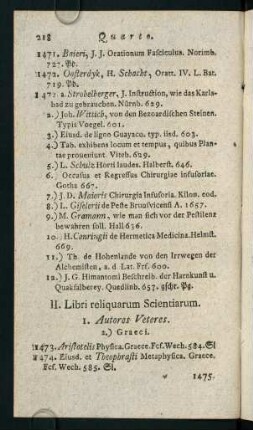 218 Quarto.
1471. Baieri, J. J. Orationum Fasciculus. Norimb.
727. Pp.
1472. Oosterdyk, H. Schacht, Oratt. IV. L. Bat.
719. Pb.
1472. a. Strobelberger, J. Instruction, wie das Karls-
bad zu gebrauchen. Nürnb. 629.
2.) Joh. Wittich, von den Bezoardischen Steinen.
Typis Voegel. 601.
3.) Eiusd. de ligno Guayacu. typ. iisd. 603.
4.) Tab. exhibens locum et tempus, quibus Plan-
tae proueniunt. Viteb. 629.
5.) L. Scholz Horti laudes. Halberst. 646.
6.) Occasus et Regressus Chirurgiae infusoriae.
Gotha 667.
7.) J. D. Maioris Chirurgia Infusoria. Kilon. eod.
8.) L. Gisleri de Peste Brunsvicensi A. 1657.
9.) M. Gramann, wie man sich vor der Pestilenz
bewahren soll. Hall 636.
10.) H. Conringii de Hermetica Medicina. Helmst.
669.
11.) Th. de Hohenlande von den Irrwegen der
Alchemisten, a. d. Lat. Frf. 600.
12.) J. G. Himantoni Beschreib. der Harnkunst u.
Quaksalberey. Quedlinb. 657. gschr. Pg.
II. Libri reliquarum Scientiarum.
1. Autores Veteres.
2.) Graeci.
1473. Aristotelis Physica. Graece. Fcf. Wech. 584. Sl
1474. Eiusd. et Theophrasti Metaphysica. Graece.
Fcf. Wech. 585. Sl.
1475.